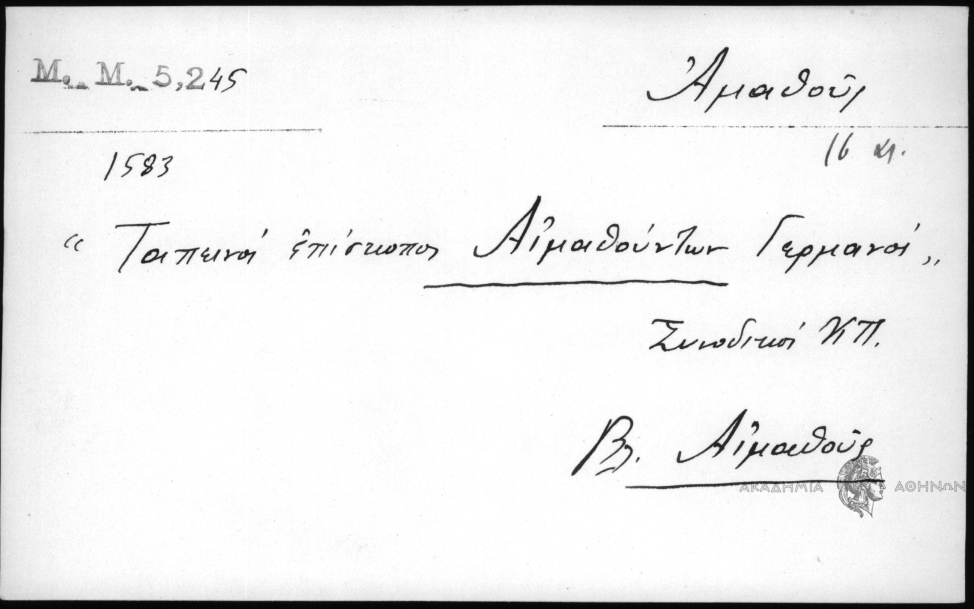 Μ. Μ. 5,245
Ἀμαθοῦς
1583
16 κ.
“ Ταπεινὸς ἐπίσκοπος Αἱμαθούντων Γερμανὸς „
Συνοδικὸς ΚΠ.
Βλ. Αἱμαθοῦς
ΑΚΑΔΗΜΙΑ ΑΘΗΝΩΝ